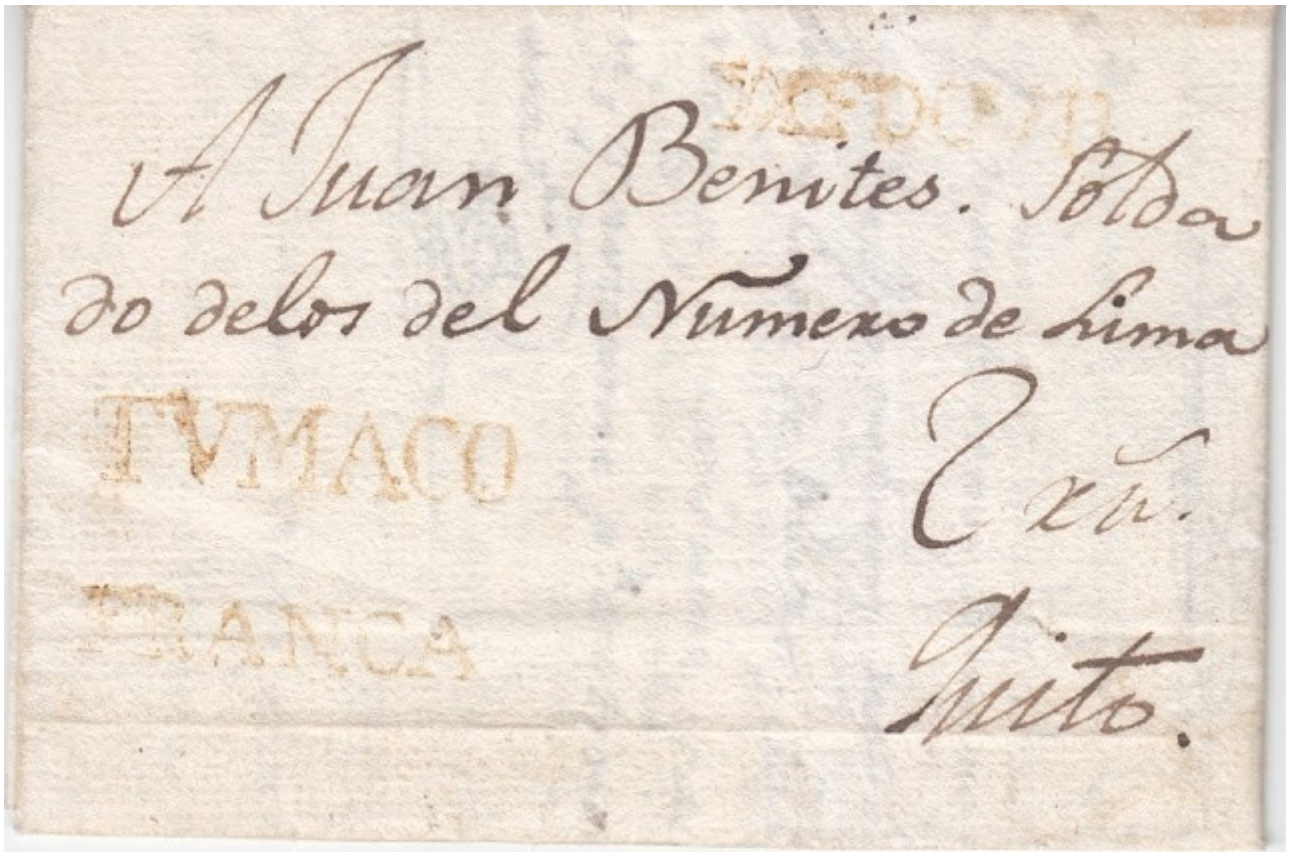 A Juan Benites. Solda
do delos del Numero de Lima
TVMACO
FRANCA
Quito.